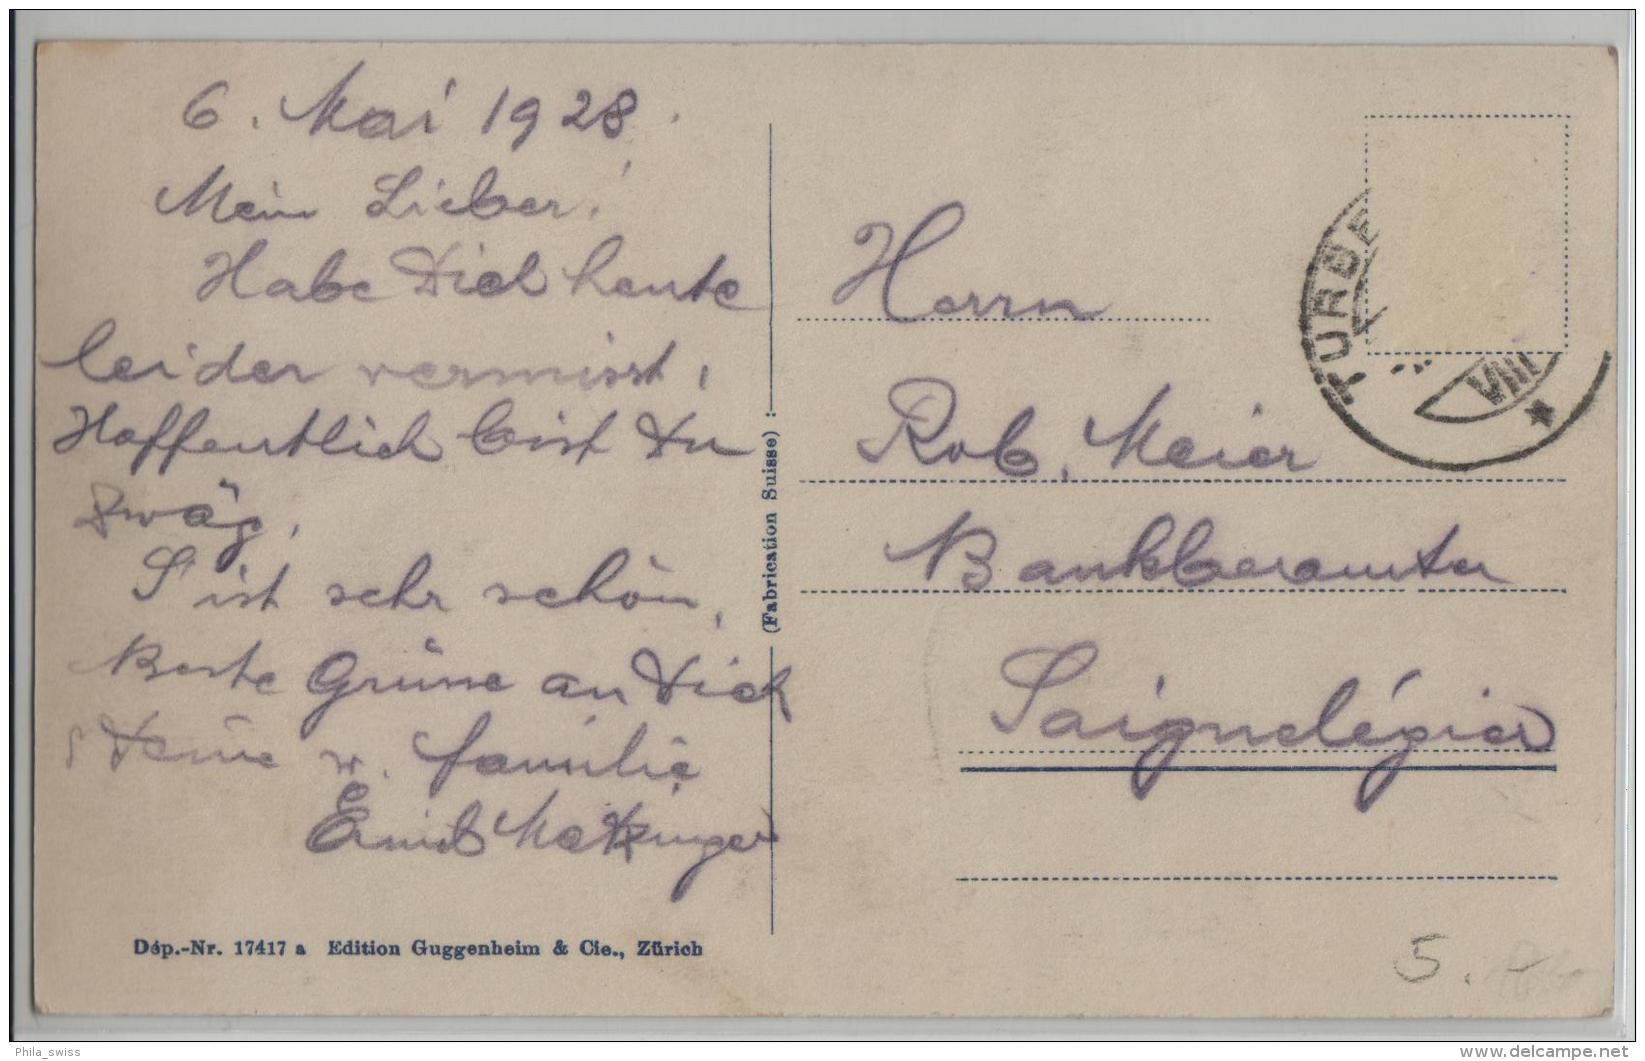 6. Mai 1928.
Mein Lieber!
Habe Dich heute
leider vermisst,
Hoffentlich bist Du
zwäg,
S'ist sehr schön,
Beste Grüsse an Dich
Deine w. Familie
Emil Metzinger
Dép.-Nr. 17417 a Edition Guggenheim & Cie., Zürich
(Fabrication Suisse)
TURBE
VIII
Herrn
Rob. Meier
Bankbeamter
Saignelégier
5.
Phila_swiss
delcampe.net